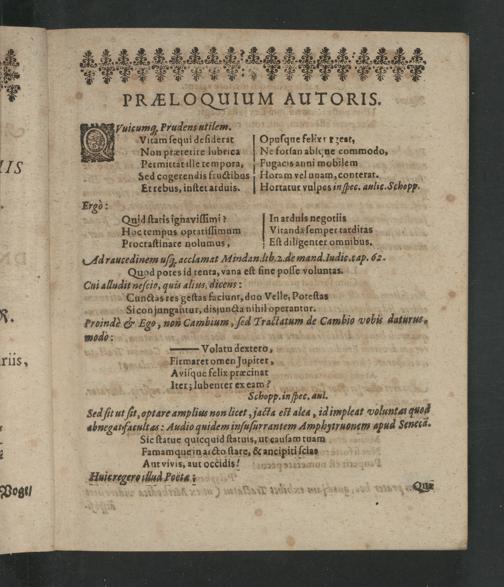 PRÆLOQUIUM AUTORIS.
QVuicumq, Prudens utilem.
Vitam sequi desiderat
Non præterire lubrica
Permittat ille tempora,
Sed cogerendis fructibus
Et rebus, instet arduis.
Opusque felix
Ne forsan absque commodo,
Fugacis anni mobilem
Horam vel unam, conterat.
Hortatur vulpes in spec. aulic. Schopp.
Ergò:
Quid statis ignavissimi?
Hoc tempus optatissimum
Procrastinare nolumus,
In arduis negotiis
Vitanda semper tarditas
Est diligenter omnibus.
Ad raucedinem usq, acclamat Mindan. lib. 2. de mand. Iudic. cap. 62.
Quod potes id tenta, vana est sine posse voluntas.
Cui alludit nescio, quis alius, dicens:
Cunctas res gestas faciunt, duo Velle, Potestas
Si conjungantur, disjuncta nihil operantur.
Proindè & Ego, non Cambium, sed Tractatum de Cambio vobis daturus,
modo:
Volatu dextero,
Firmaret omen Jupiter,
Avisque felix præcinat
Iter; lubenter exeam?
Schopp. in spec. aul.
Sed sit ut sit, optare amplius non licet, jacta est alea, id impleat voluntas quod
abnegat facultas: Audio quidem insusurrantem Amphytruonem apud Senecã.
Sic statue quicquid statuis, ut causam tuam
Famamque in arcto stare, & ancipiti scias
Aut vivis, aut occidis!
Huic regero illud Poëtæ;
Quæ
MIS
R.
riis,
Vogt/